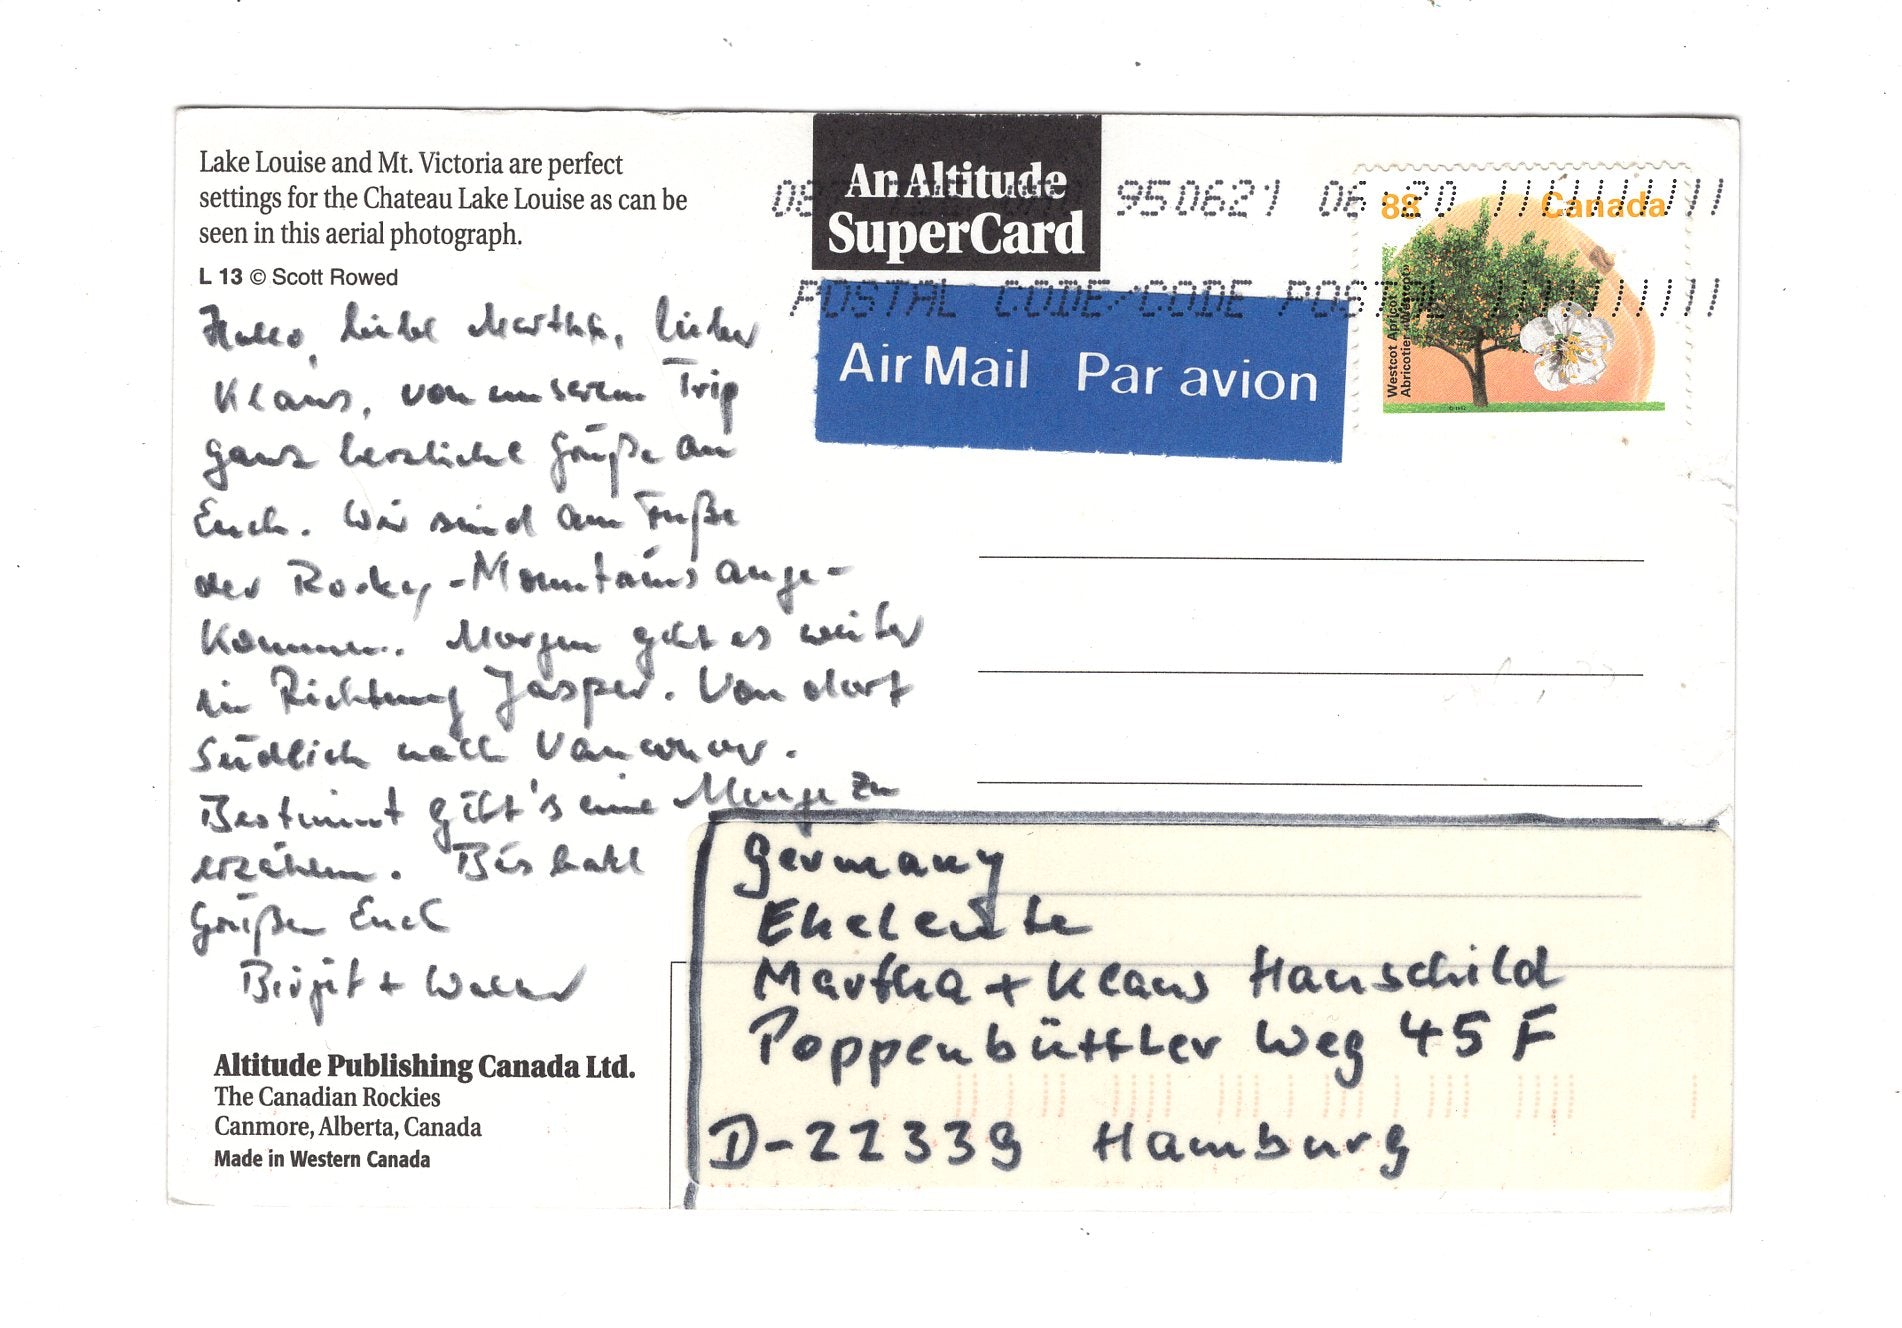 Lake Louise and Mt. Victoria are perfect
settings for the Chateau Lake Louise as can be
seen in this aerial photograph.
L 13 © Scott Rowed
Hallo, liebe Martha, lieber
Klaus, von unserem Trip
ganz herzliche Grüße an
Euch. Wir sind am Fuße
der Rocky-Mountains ange-
kommen. Morgen geht es weiter
in Richtung Jasper. Von dort
südlich nach Vancouver.
Bestimmt gibt's eine Menge zu
erzählen. Bis bald
Grüßen Euch
Birgit +
Altitude Publishing Canada Ltd.
The Canadian Rockies
Canmore, Alberta, Canada
Made in Western Canada
An Altitude
SuperCard
950621 06:20
POSTAL CODE/CODE POSTAL
Air Mail Par avion
88 Canada
Westcot Apricot
Abricotier Westcot
Germany
Eheleute
Martha + Klaus Hauschild
Poppenbüttler Weg 45 F
D-22339 Hamburg